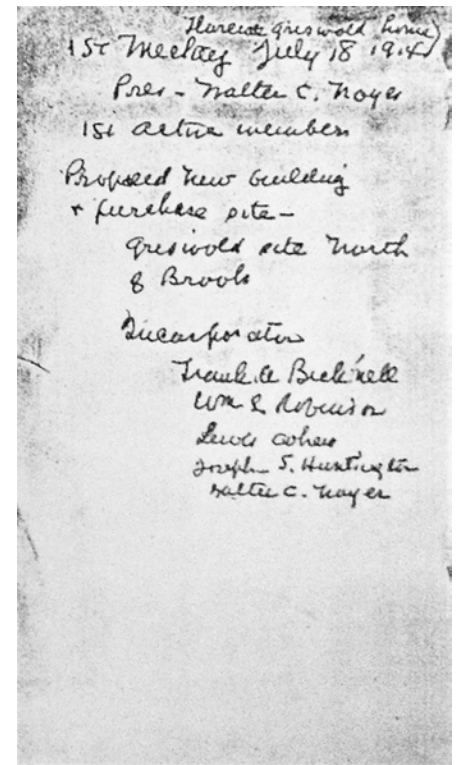 Florence Griswold home)
1st Meeting July 18 1914
Pres - Walter C. Noyes
1st active members
Proposed new building
+ purchase site -
Griswold site North
of Brook
Incorporators
Frank A Bicknell
Wm S Robinson
Lewis Cohen
Joseph S. Huntington
Walter C. Noyes